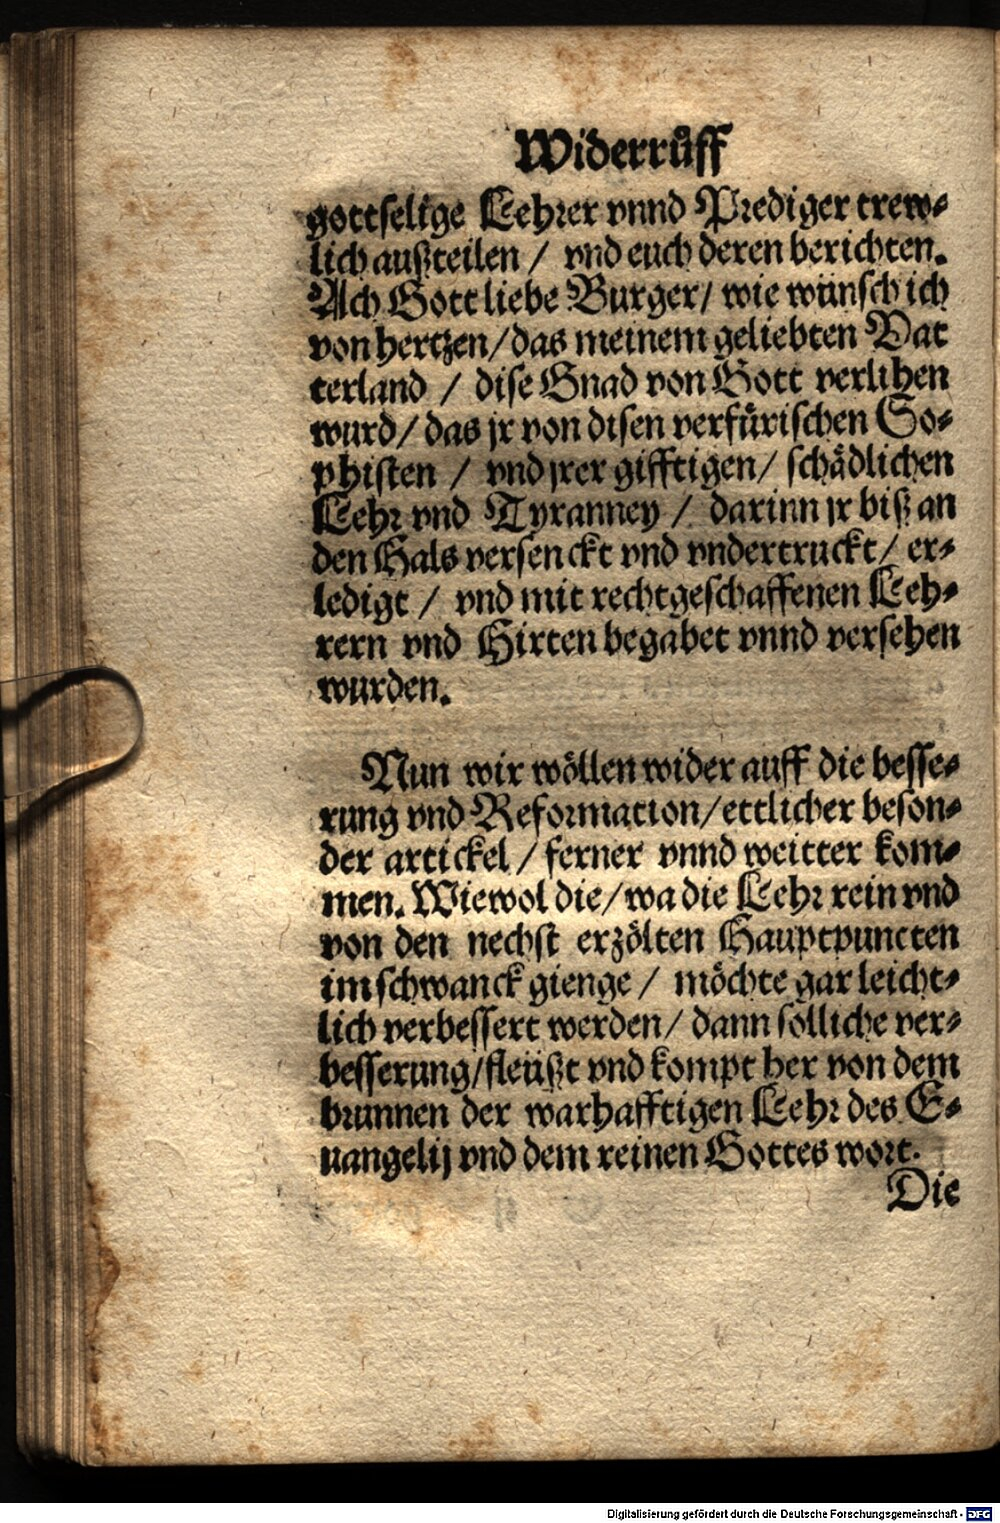 Widerrůff
gottselige Lehrer vnnd Prediger trew⸗
lich außteilen / vnd euch deren berichten.
Ach Gott liebe Burger/ wie wünsch ich
von hertzen/das meinem geliebten Vat
terland / dise Gnad von Gott verlihen
wurd/ das jr von disen verfürischen So⸗
phisten / vnd jrer gifftigen/ schädlichen
Lehr vnd Tyranney / darinn jr biß an
den Hals versenckt vnd vndertruckt/ er⸗
ledigt / vnd mit rechtgeschaffenen Leh⸗
rern vnd Hirten begabet vnnd versehen
wurden.
Nun wir wöllen wider auff die besse⸗
rung vnd Reformation/ettlicher beson⸗
der artickel / ferner vnnd weitter kom⸗
men. Wiewol die/wa die Lehr rein vnd
von den nechst erzölten Hauptpuncten
im schwanck gienge / möchte gar leicht⸗
lich verbessert werden/ dann solliche ver⸗
besserung/fleüßt vnd kompt her von dem
brunnen der warhafftigen Lehr des E⸗
uangelij vnd dem reinen Gottes wort.
Die
Digitalisierung gefördert durch die Deutsche Forschungsgemeinschaft - DFG